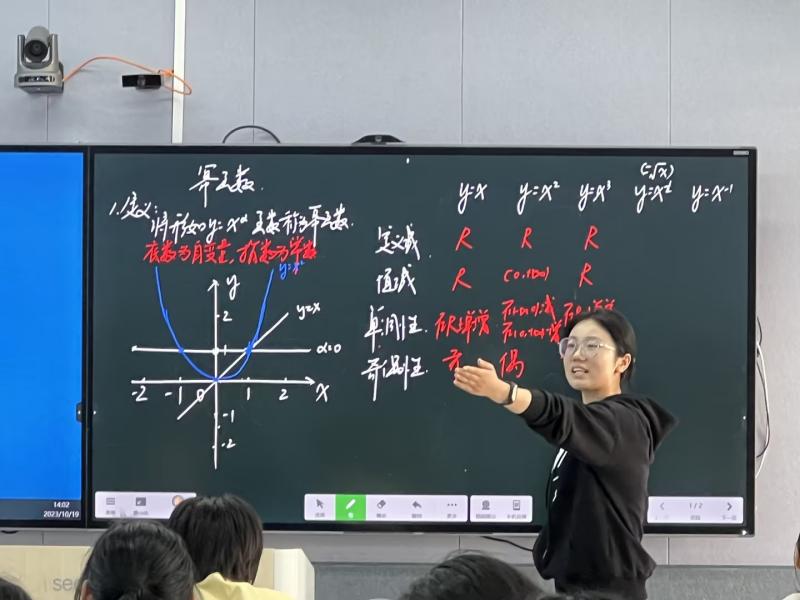 幂函数.
1.定义:
将形如y=x^α函数称为幂函数.
底数为自变量,指数为常数
y=x²
y
y=x
2
1
α=0
-2 -1 0 1 2 x
-1
-2
(=√x)
y=x y=x² y=x³ y=x^½ y=x⁻¹
定义域 R R R
值域 R R
单调性. 在R上单增
奇偶性. 奇 偶
14:02
2023/10/19
1/2